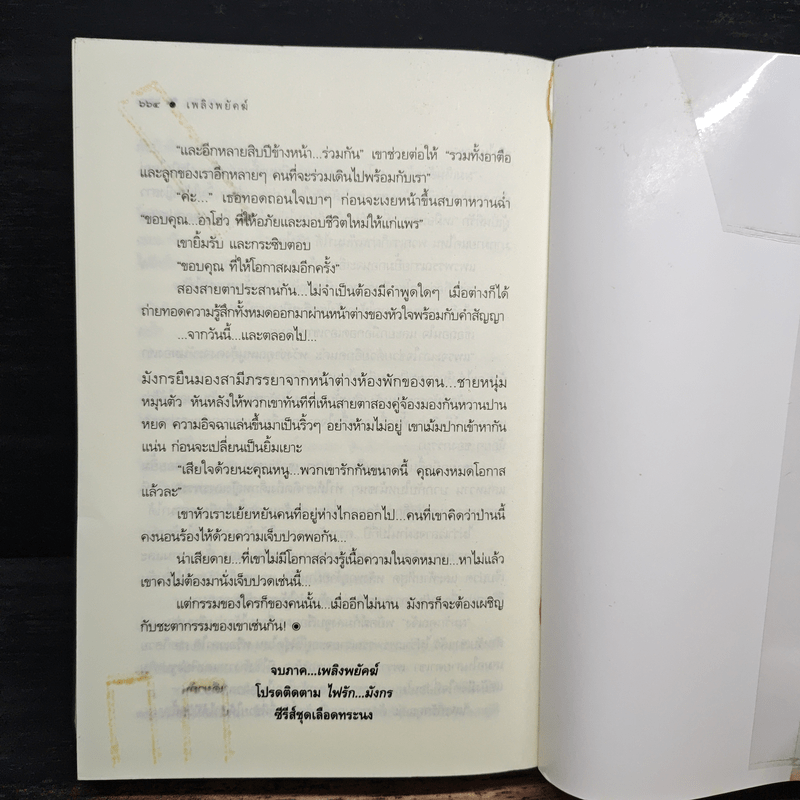 ๖๖๔ ● เพลิงพยัคฆ์
"และอีกหลายสิบปีข้างหน้า...ร่วมกัน" เขาช่วยต่อให้ "รวมทั้งอาตือ
และลูกของเราอีกหลายๆ คนที่จะร่วมเดินไปพร้อมกับเรา"
"ค่ะ..." เธอทอดถอนใจเบาๆ ก่อนจะเงยหน้าขึ้นสบตาหวานฉ่ำ
"ขอบคุณ...อาโฮ่ว ที่ให้อภัยและมอบชีวิตใหม่ให้แก่แพร"
เขายิ้มรับ และกระซิบตอบ
"ขอบคุณ ที่ให้โอกาสผมอีกครั้ง"
สองสายตาประสานกัน...ไม่จำเป็นต้องมีคำพูดใดๆ เมื่อต่างก็ได้
ถ่ายทอดความรู้สึกทั้งหมดออกมาผ่านหน้าต่างของหัวใจพร้อมกับคำสัญญา
...จากวันนี้...และตลอดไป...
มังกรยืนมองสามีภรรยาจากหน้าต่างห้องพักของตน...ชายหนุ่ม
หมุนตัว หันหลังให้พวกเขาทันทีที่เห็นสายตาสองคู่จ้องมองกันหวานปาน
หยด ความอิจฉาแล่นขึ้นมาเป็นริ้วๆ อย่างห้ามไม่อยู่ เขาเม้มปากเข้าหากัน
แน่น ก่อนจะเปลี่ยนเป็นยิ้มเยาะ
"เสียใจด้วยนะคุณหนู...พวกเขารักกันขนาดนี้ คุณคงหมดโอกาส
แล้วละ"
เขาหัวเราะเย้ยหยันคนที่อยู่ห่างไกลออกไป...คนที่เขาคิดว่าป่านนี้
คงนอนร้องไห้ด้วยความเจ็บปวดพอกัน...
น่าเสียดาย...ที่เขาไม่มีโอกาสล่วงรู้เนื้อความในจดหมาย...หาไม่แล้ว
เขาคงไม่ต้องมานั่งเจ็บปวดเช่นนี้...
แต่กรรมของใครก็ของคนนั้น...เมื่ออีกไม่นาน มังกรก็จะต้องเผชิญ
กับชะตากรรมของเขาเช่นกัน! ◉
จบภาค...เพลิงพยัคฆ์
โปรดติดตาม ไฟรัก...มังกร
ซีรีส์ชุดเลือดทระนง